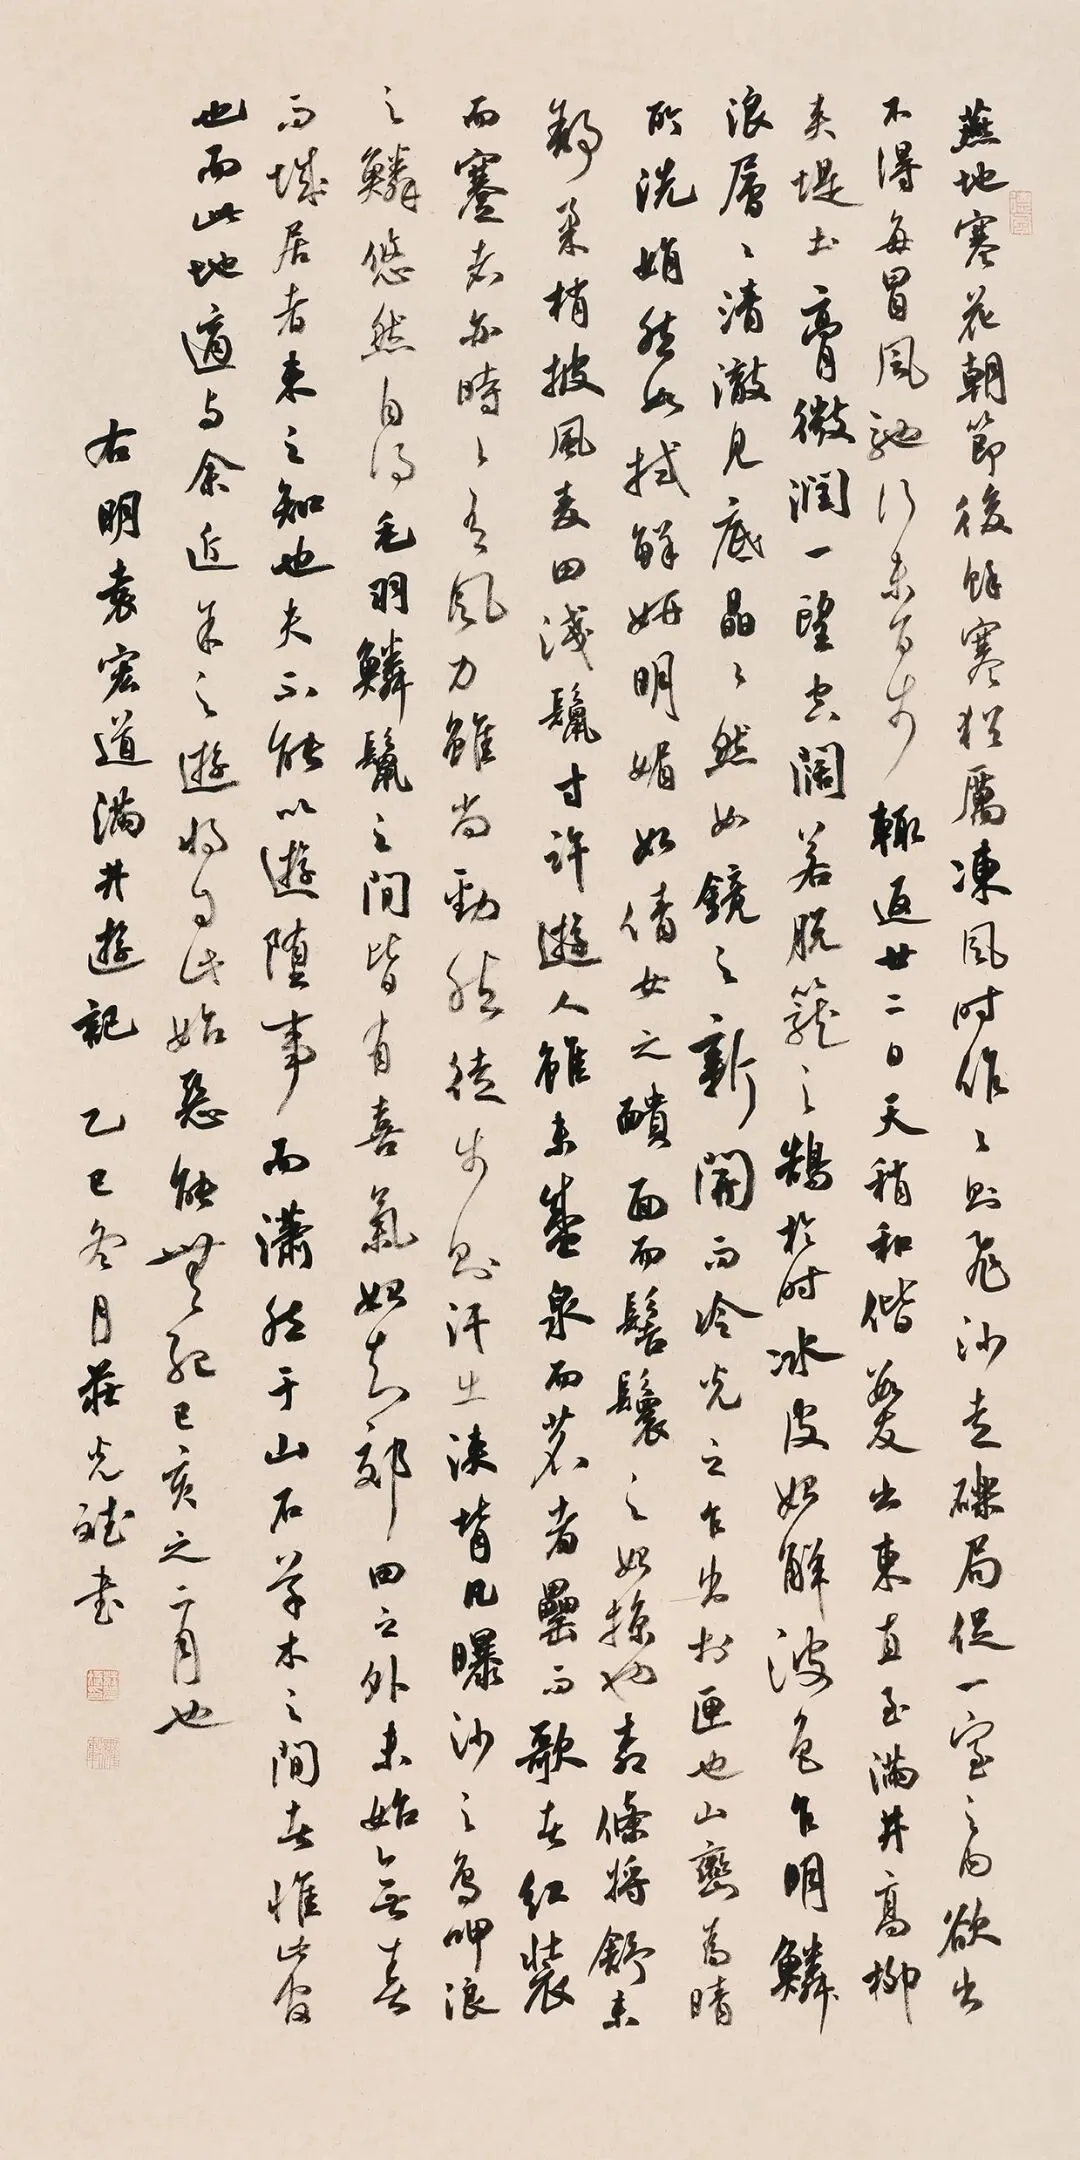 燕地寒花朝節後餘寒猶厲凍風時作〻則飛沙走礫局促一室之內欲出
不得每冒風馳行未百步輒返廿二日天稍和偕數友出東直至滿井高柳
夾堤土膏微潤一望空闊若脫籠之鵠於時冰皮始解波色乍明鱗
浪層〻清澈見底晶〻然如鏡之新開而冷光之乍出於匣也山巒為晴
所洗娟然如拭鮮妍明媚如倩女之靧面而髻鬟之始掠也柳條將舒未
舒柔梢披風麥田淺鬣寸許遊人雖未盛泉而茗者罍而歌者紅裝
而蹇者亦時〻有風力雖尚勁然徒步則汗出浹背凡曝沙之鳥呷浪
之鱗悠然自得毛羽鱗鬣之間皆有喜氣始知郊田之外未始無春
而城居者未之知也夫不能以遊墮事而瀟然于山石草木之間者惟此官
也而此地適與余近余之遊將自此始惡能無紀己亥之二月也
右明袁宏道滿井遊記 乙巳冬月莊光誌書